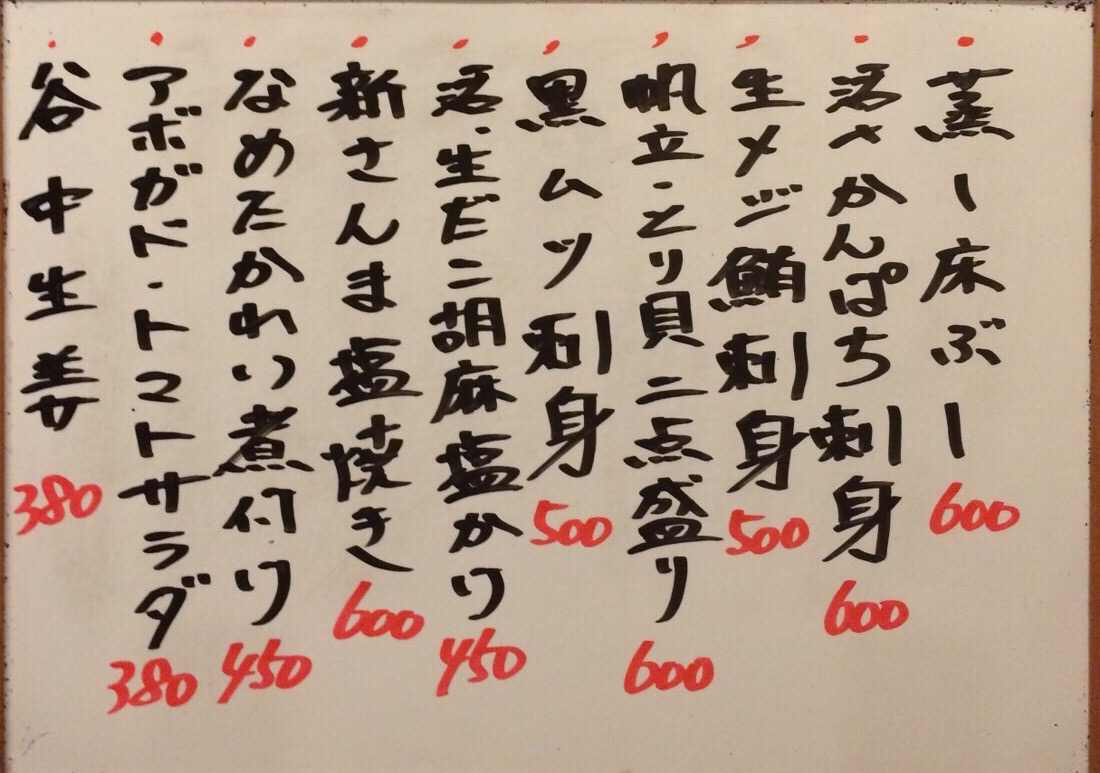 蒸し床ぶし 600
活〆かんぱち刺身 600
生メジ鮪刺身 500
帆立・とり貝二点盛り 600
黒ムツ刺身 500
活・生だこ胡麻塩かけ 450
新さんま塩焼き 600
なめたかれい煮付け 450
アボガド・トマトサラダ 380
谷中生姜 380